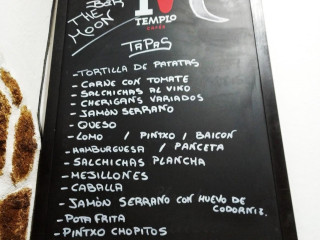 BAR
THE
MOON
TEMPLO
CAFÉS
TAPAS
-TORTILLA DE PATATAS
- CARNE CON TOMATE
- SALCHICHAS AL VINO
- CHERIGANS VARIADOS
- JAMÓN SERRANO
- QUESO
- LOMO / PINTXO / BAICON
- HAMBURGUESA / PANCETA
- SALCHICHAS PLANCHA
- MEJILLONES
- CABALLA
- JAMÓN SERRANO CON HUEVO DE
CODORNIZ.
- POTA FRITA
- PINTXO CHOPITOS